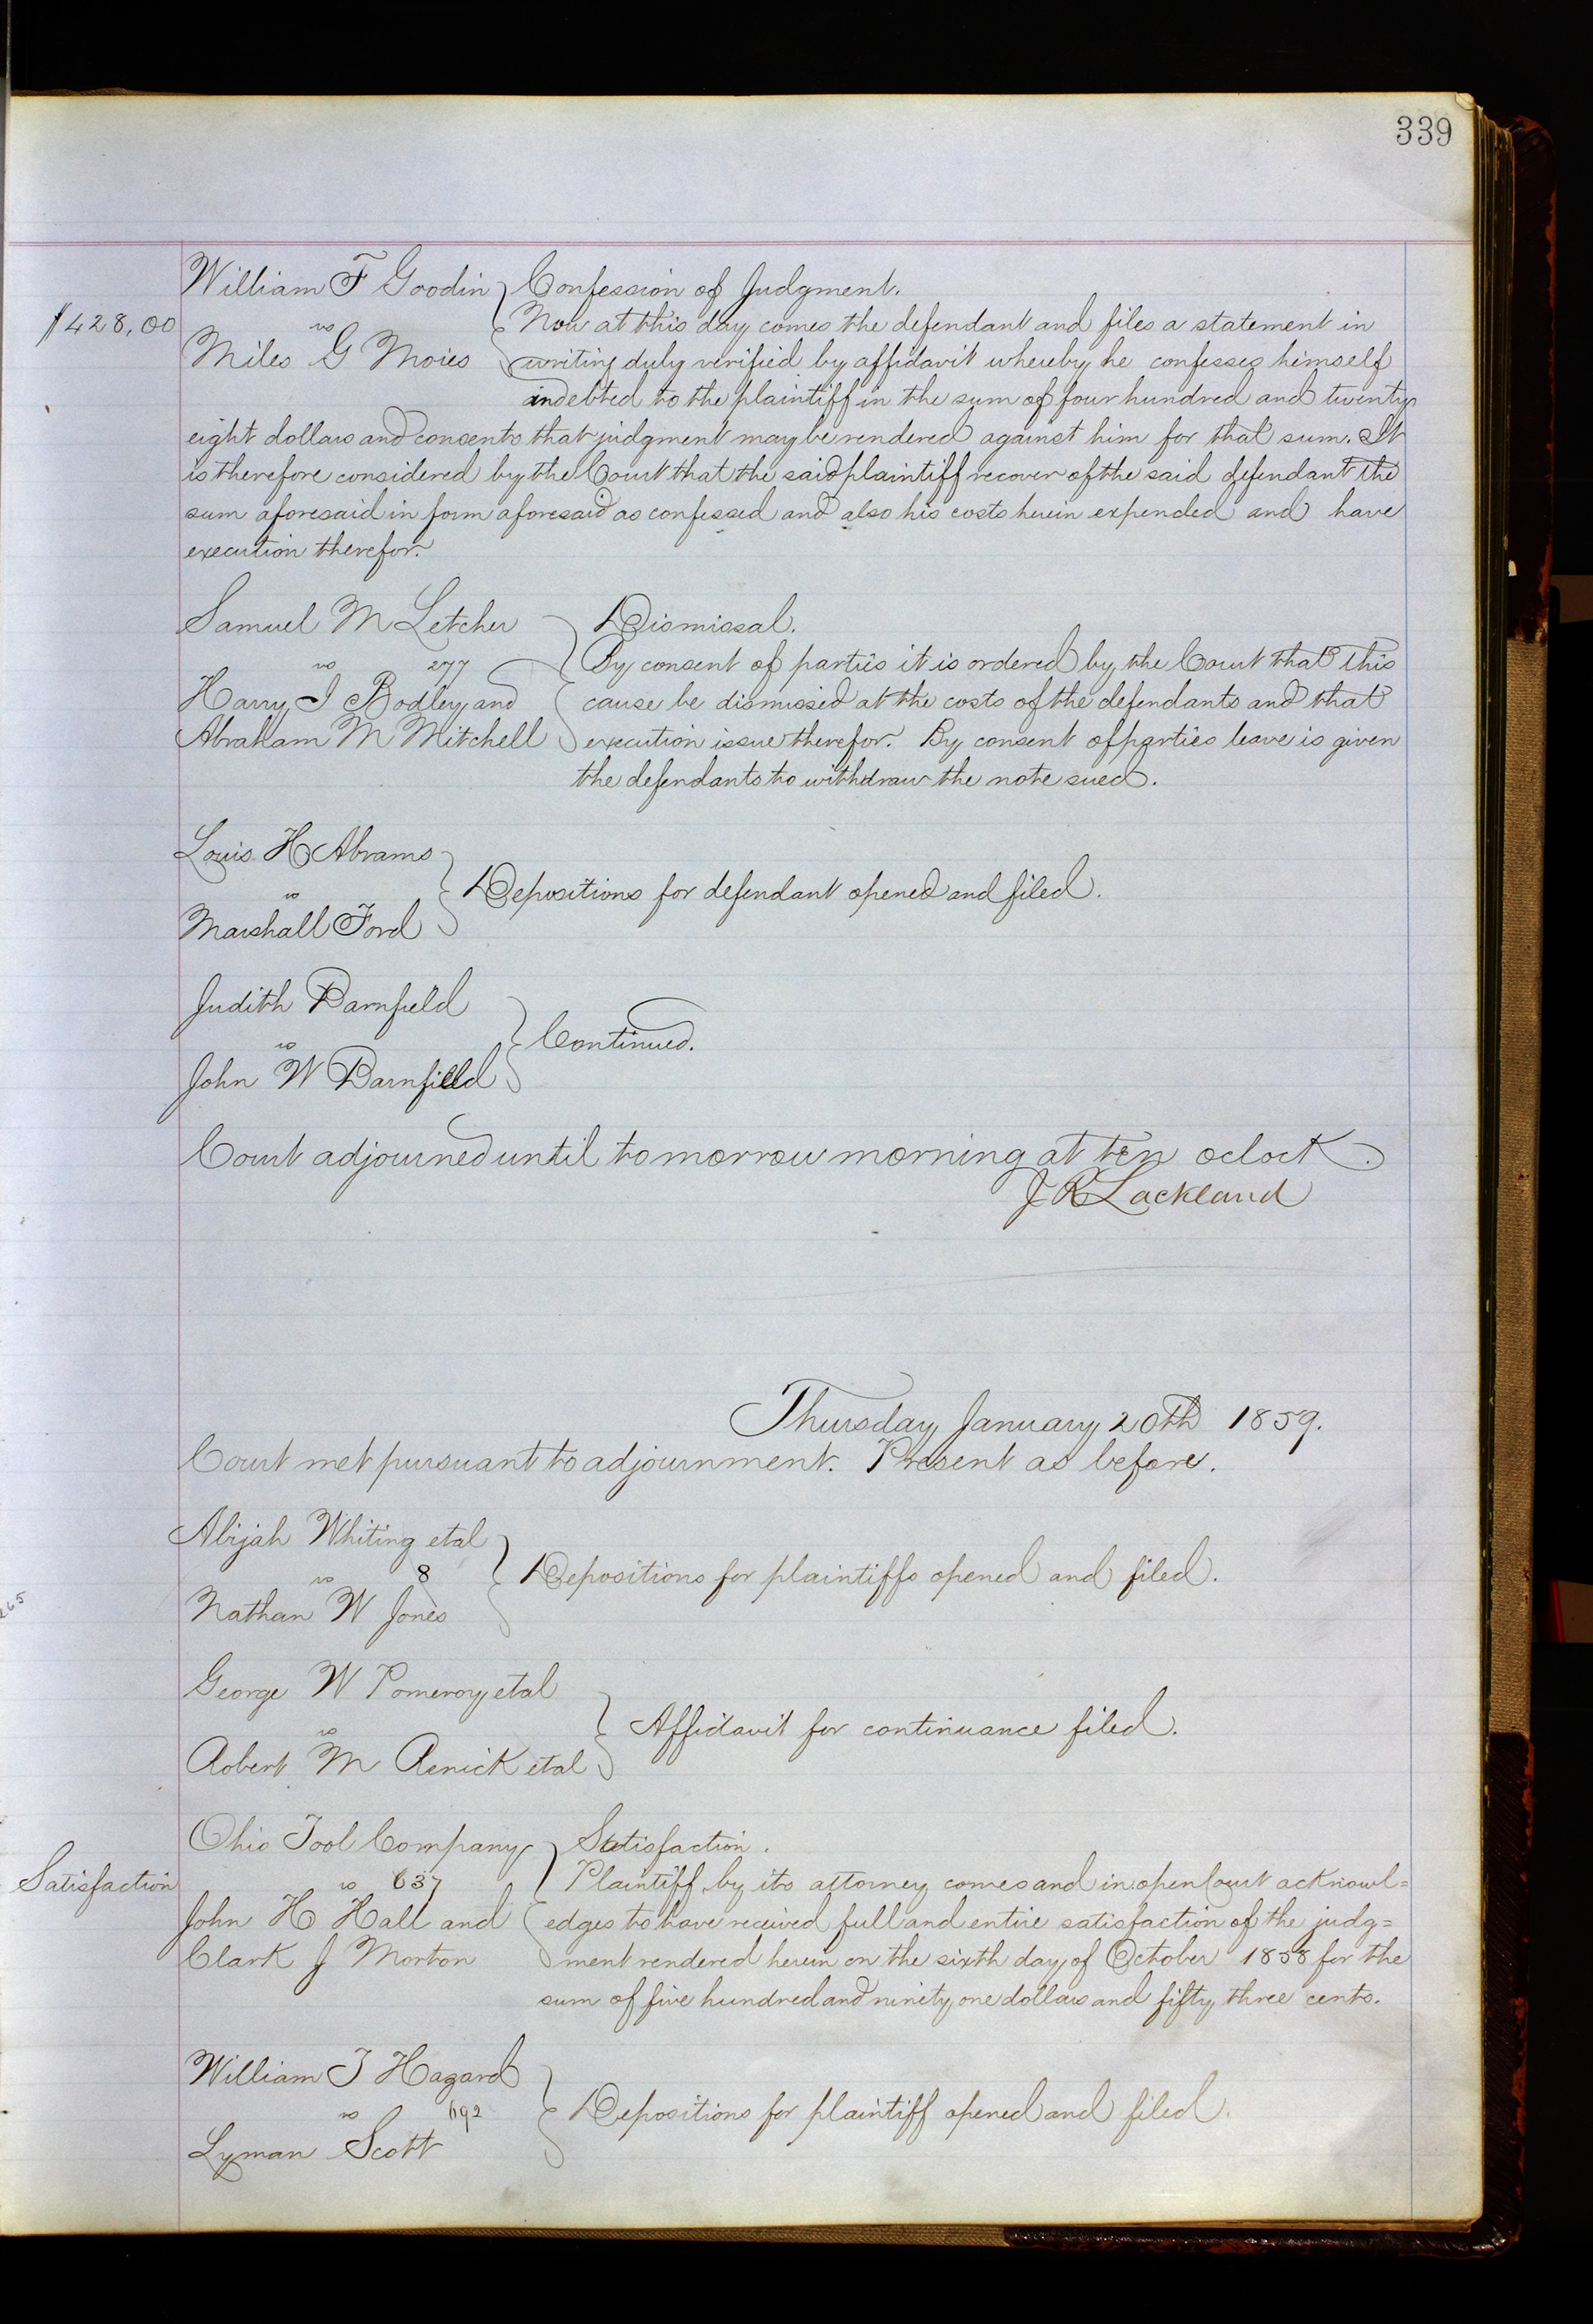 339
William F Goodin Confession of Judgment.
$428,00 vs Now at this day comes the defendant and files a statement in
Miles G Moies writing duly verified by affidavit whereby he confesses himself
indebted to the plaintiff in the sum of four hundred and twenty
eight dollars and consents that judgment may be rendered against him for that sum. It
is therefore considered by the Court that the said plaintiff recover of the said defendant the
sum aforesaid in form aforesaid as confessed and also his costs herein expended and have
execution therefor.
Samuel M Letcher Dismissal.
vs 277 By consent of parties it is ordered by the Court that this
Harry I Bodley and cause be dismissed at the costs of the defendants and that
Abraham M Mitchell execution issue therefor. By consent of parties leave is given
the defendants to withdraw the note sued.
Louis H Abrams
vs Depositions for defendant opened and filed.
Marshall Ford
Judith Barnfield
vs Continued.
John W Barnfield
Court adjourned until tomorrow morning at ten oclock.
J R Lackland
Thursday January 20th 1859.
Court met pursuant to adjournment. Present as before.
Abijah Whiting etal
vs 8 Depositions for plaintiffs opened and filed.
Nathan W Jones
265
George W Pomeroy etal
vs Affidavit for continuance filed.
Robert M Renick etal
Ohio Tool Company Satisfaction.
Satisfaction vs 637 Plaintiff by its attorney comes and in open Court acknowl=
John H Hall and edges to have received full and entire satisfaction of the judg=
Clark J Morton ment rendered herein on the sixth day of October 1858 for the
sum of five hundred and ninety one dollars and fifty three cents.
William T Hagard
vs 692 Depositions for plaintiff opened and filed.
Lyman Scott